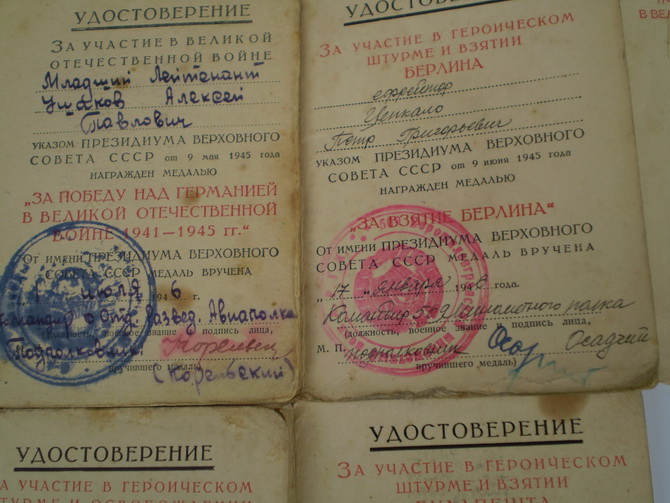 УДОСТОВЕРЕНИЕ
ЗА УЧАСТИЕ В ВЕЛИКОЙ
ОТЕЧЕСТВЕННОЙ ВОЙНЕ
Младший Лейтенант
Ушаков Алексей
Павлович
УКАЗОМ ПРЕЗИДИУМА ВЕРХОВНОГО
СОВЕТА СССР от 9 мая 1945 года
НАГРАЖДЕН МЕДАЛЬЮ
„ЗА ПОБЕДУ НАД ГЕРМАНИЕЙ
В ВЕЛИКОЙ ОТЕЧЕСТВЕННОЙ
ВОЙНЕ 1941—1945 гг."
ОТ ИМЕНИ ПРЕЗИДИУМА ВЕРХОВНОГО
СОВЕТА СССР МЕДАЛЬ ВРУЧЕНА
июля 1946 г.
Развед. Авиаполка
(должность, военное звание и подпись лица,
Подполковник
вручившего медаль)
(Корельский)
УДОСТОВЕРЕНИЕ
ЗА УЧАСТИЕ В ГЕРОИЧЕСКОМ
ШТУРМЕ И ВЗЯТИИ
БЕРЛИНА
ефрейтор
Цепкало
Петр Григорьевич
УКАЗОМ ПРЕЗИДИУМА ВЕРХОВНОГО
СОВЕТА СССР от 9 июня 1945 года
НАГРАЖДЕН МЕДАЛЬЮ
„ЗА ВЗЯТИЕ БЕРЛИНА"
ОТ ИМЕНИ ПРЕЗИДИУМА ВЕРХОВНОГО
СОВЕТА СССР МЕДАЛЬ ВРУЧЕНА
„17" января 194 года.
Командир полка
(должность, военное звание подпись лица,
М. П. подполковник Осадчий
вручившего медаль)
УДОСТОВЕРЕНИЕ
ЗА УЧАСТИЕ В ГЕРОИЧЕСКОМ
УДОСТОВЕРЕНИЕ
ЗА УЧАСТИЕ В ГЕРОИЧЕСКОМ
ШТУРМЕ И ВЗЯТИИ